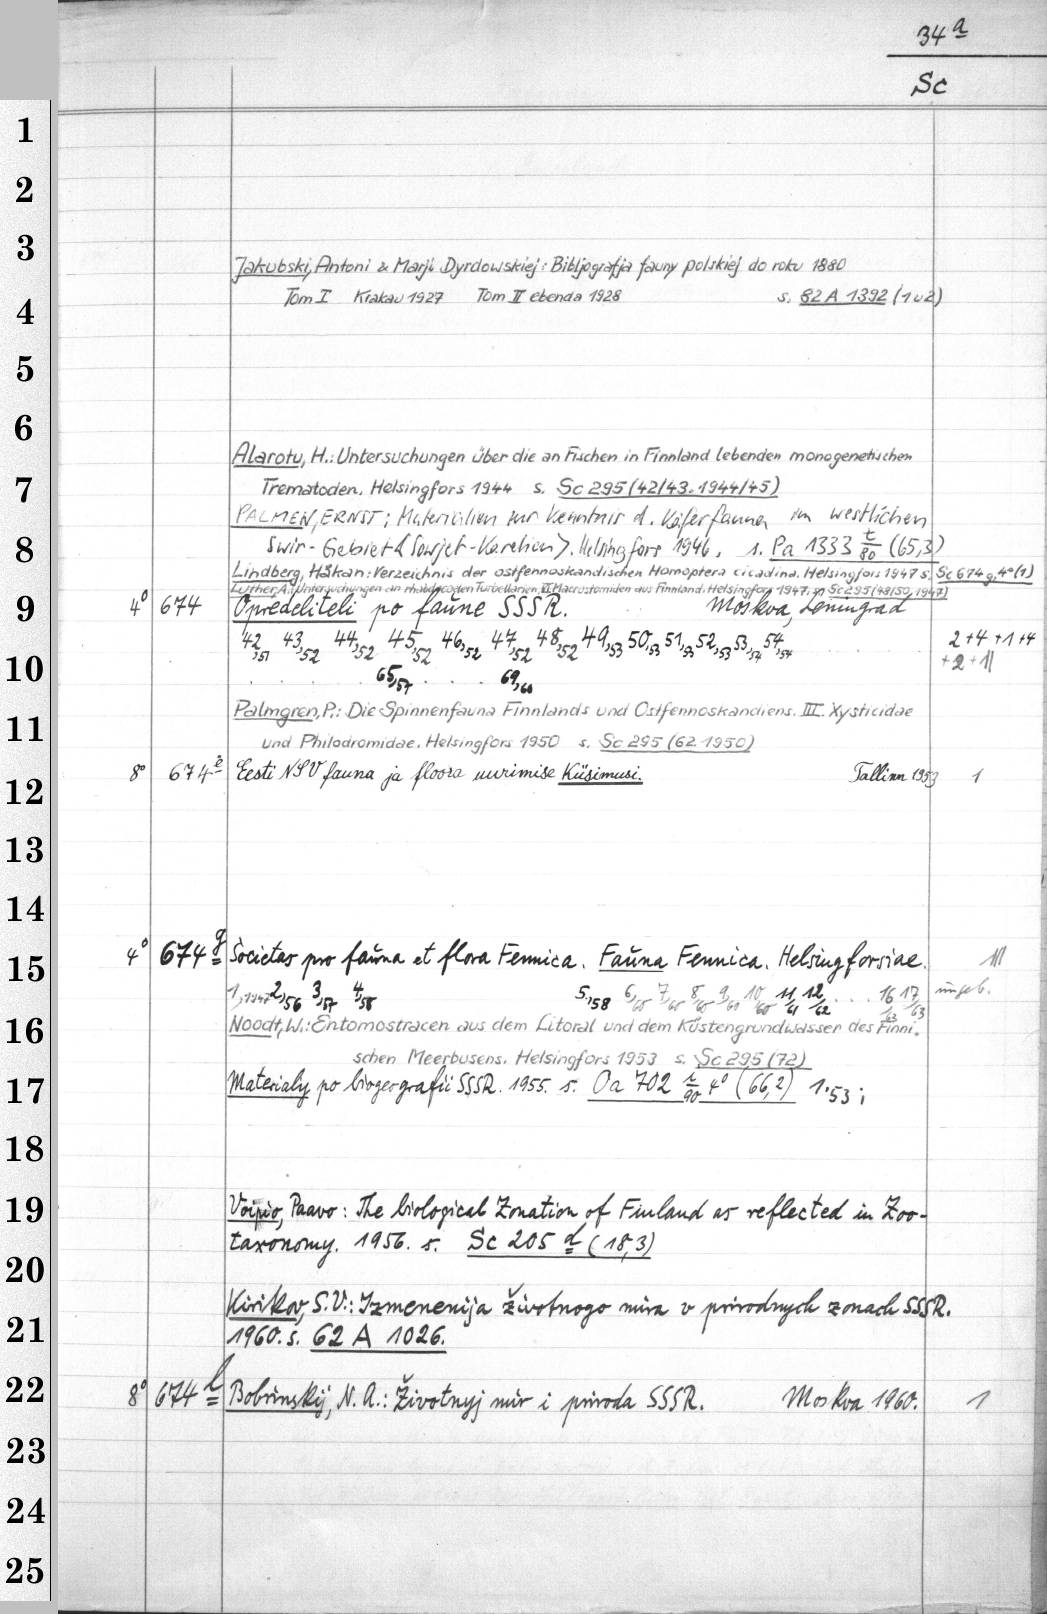 34 a
Sc
1
2
3
Jakubski, Antoni & Marji Dyrdowskiej: Bibljografja fauny polskiej do roku 1880
Tom I Krakau 1927 Tom II ebenda 1928 s. 82 A 1392 (1 u 2)
4
5
6
Alarotu, H.: Untersuchungen über die an Fischen in Finnland lebenden monogenetischen
7 Trematoden. Helsingfors 1944 s. Sc 295 (42/43. 1944/45)
PALMEN, ERNST; Materialien zur Kenntnis d. Käferfauna im westlichen
8 Swir-Gebiet (Sowjet-Karelien). Helsingfors 1946. s. Pa 1333 t/80 (65,3)
Lindberg, Håkan: Verzeichnis der ostfennoskandischen Homoptera cicadina. Helsingfors 1947 s. Sc 674 g, 4° (1)
Luther, A.: Untersuchungen an rhabdocoelen Turbellarien VI Macrostomiden aus Finnland. Helsingfors 1947. s. Sc 295 (48/50, 1947)
9 4° 674 Opredeliteli po faune SSSR. Moskva, Leningrad
42,51 43,52 44,52 45,52 46,52 47,52 48,52 49,53 50,53 51,53 52,53 53,54 54,54 2+4+1+4
10 65,57 69,60 +2+11
Palmgren, P.: Die Spinnenfauna Finnlands und Ostfennoskandiens. III. Xysticidae
11 und Philodromidae. Helsingfors 1950 s. Sc 295 (62 1950)
12 8° 674 e Eesti NSV fauna ja floora uurimise Küsimusi. Tallinn 1953 1
13
14
15 4° 674 g Societas pro fauna et flora Fennica. Fauna Fennica. Helsingforsiae.
1,1947 2,56 3,57 4,58 5,58 6,60 7,60 8,60 9,60 10,60 11/61 12/62 16/63 17/63 ungeb.
16 Noodt, W.: Entomostracen aus dem Litoral und dem Küstengrundwasser des Finni-
schen Meerbusens. Helsingfors 1953 s. Sc 295 (72)
17 Materialy po biogeografii SSSR. 1955. s. Oa 702 r/90 4° (66,2) 1.53;
18
19 Voipio, Paavo: The biological Zonation of Finland as reflected in Zoo-
taxonomy. 1956. s. Sc 205 d (18,3)
20
Kirikov, S. V.: Izmenenija životnogo mira v prirodnych zonach SSSR.
21 1960. s. 62 A 1026.
22 8° 674 l Bobrinskij, N. A.: Životnyj mir i priroda SSSR. Moskva 1960. 1
23
24
25